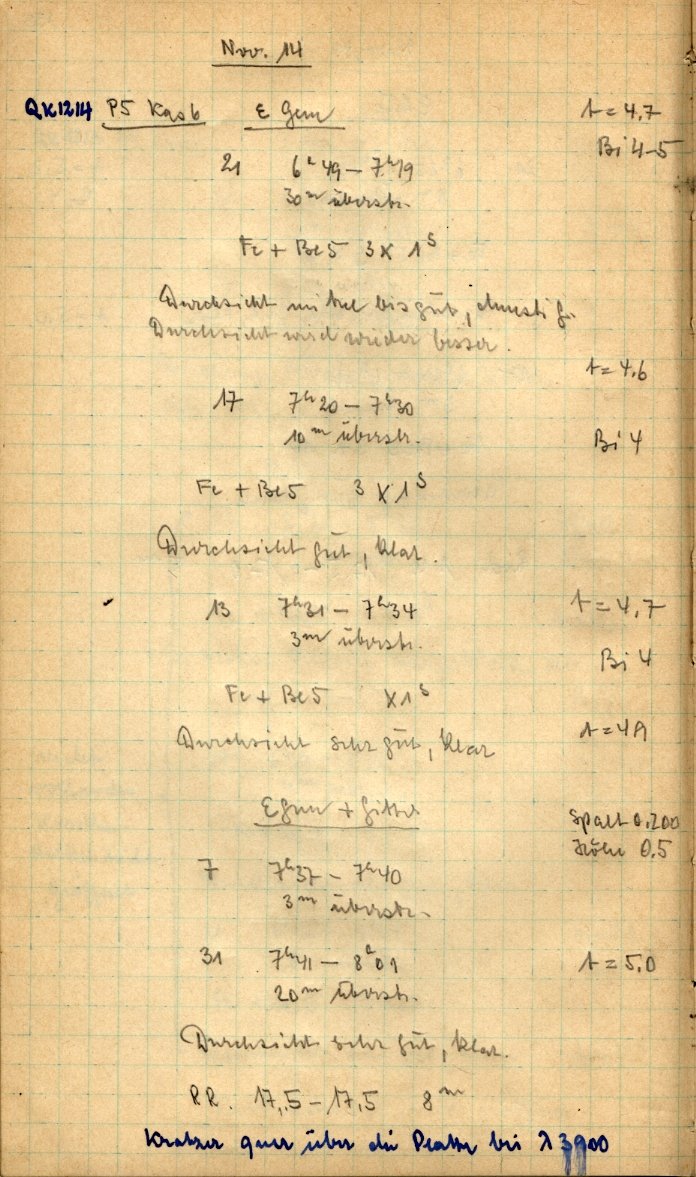 Nov. 14
QK1214 P5 Kas b ε Gem t = 4,7
Bi 4-5
21 6h 49 – 7h 19
30m überstr.
Fe + Be5 3 x 1s
Durchsicht mittel bis gut, dunstig.
Durchsicht wird wieder besser.
t = 4,6
17 7h 20 – 7h 30
10m überstr. Bi 4
Fe + Be5 3 x 1s
Durchsicht gut, klar.
13 7h 31 – 7h 34 t = 4,7
3m überstr.
Bi 4
Fe + Be5 x 1s
Durchsicht sehr gut, klar t = 4,9
ε Gem + Gitter Spalt 0.200
Höhe 0.5
7 7h 37 – 7h 40
3m überstr.
31 7h 41 – 8h 01 t = 5,0
20m überstr.
Durchsicht sehr gut, klar.
RR. 17,5 – 17,5 8m
Kratzer quer über die Platte bis λ 3900